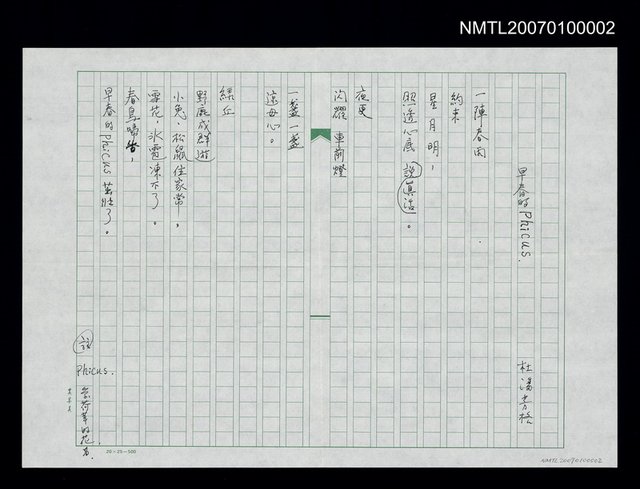 NMTL20070100002
早春的Phicus.
杜潘芳格
一陣春雨
約束
星月明，
照透心底說真話。
夜更
閃耀 車前燈
一盞一盞
遠母心。
綠丘
野鹿成群遊
小兔，松鼠住家常，
雪花，冰雹凍不了。
春鳥啼，
早春的Phicus 茁壯了。
註
Phicus.
20×25=500
NMTL20070100002